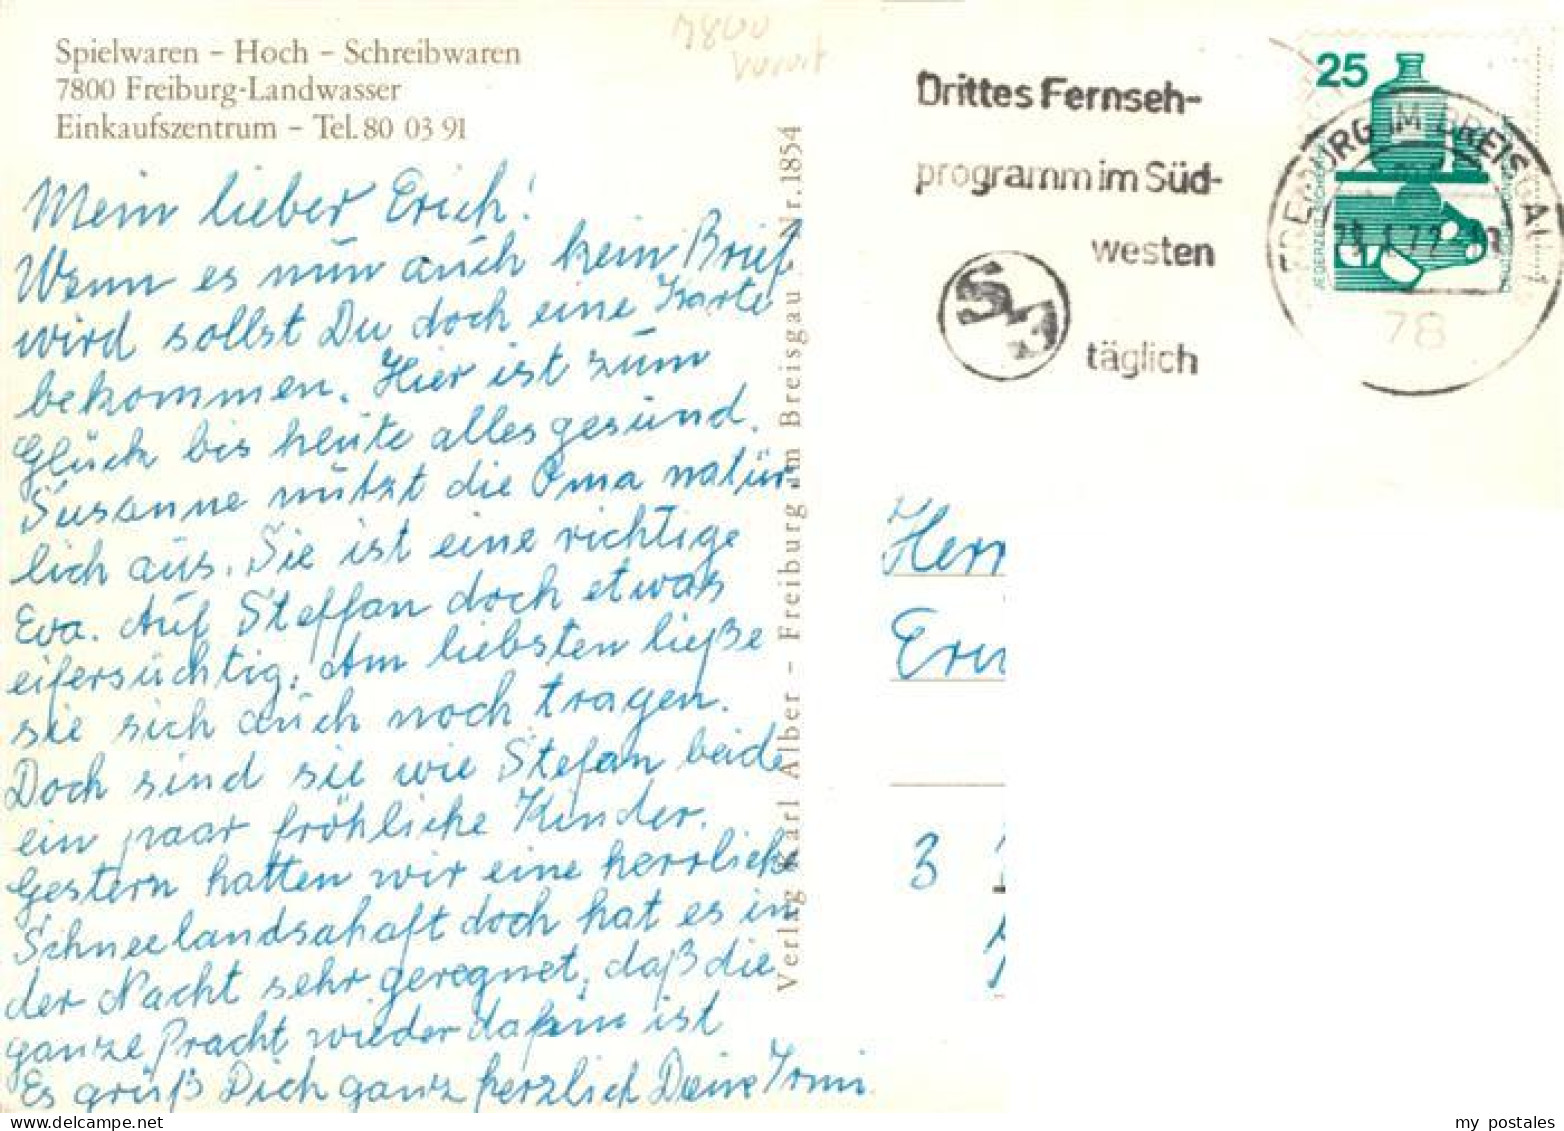 7800
Spielwaren – Hoch – Schreibwaren
7800 Freiburg-Landwasser
Einkaufszentrum – Tel. 80 03 91
Mein lieber Erich!
Wenn es nun auch kein Brief
wird sollst Du doch eine Karte
bekommen. Hier ist zum
Glück bis heute alles gesund.
Susanne nützt die Oma natür-
lich aus. Sie ist eine richtige
Eva. Auf Steffan doch etwas
eifersüchtig. Am liebsten ließe
sie sich auch noch tragen.
Doch sind sie wie Stefan beide
ein paar fröhliche Kinder.
Gestern hatten wir eine herrlich
Schneelandsahaft doch hat es in
der Nacht sehr geregnet, daß die
ganze Pracht wieder dahin ist
Es grüß Dich ganz herzlich Deine Irmi.
Verlag Karl Alber – Freiburg im Breisgau Nr. 1854
Drittes Fernseh-
programm im Süd-
westen
S3
täglich
25
JEDERZEIT SICHERHEIT
FREIBURG IM BREISGAU 1
72
78
Herr
Ern
3
my postales